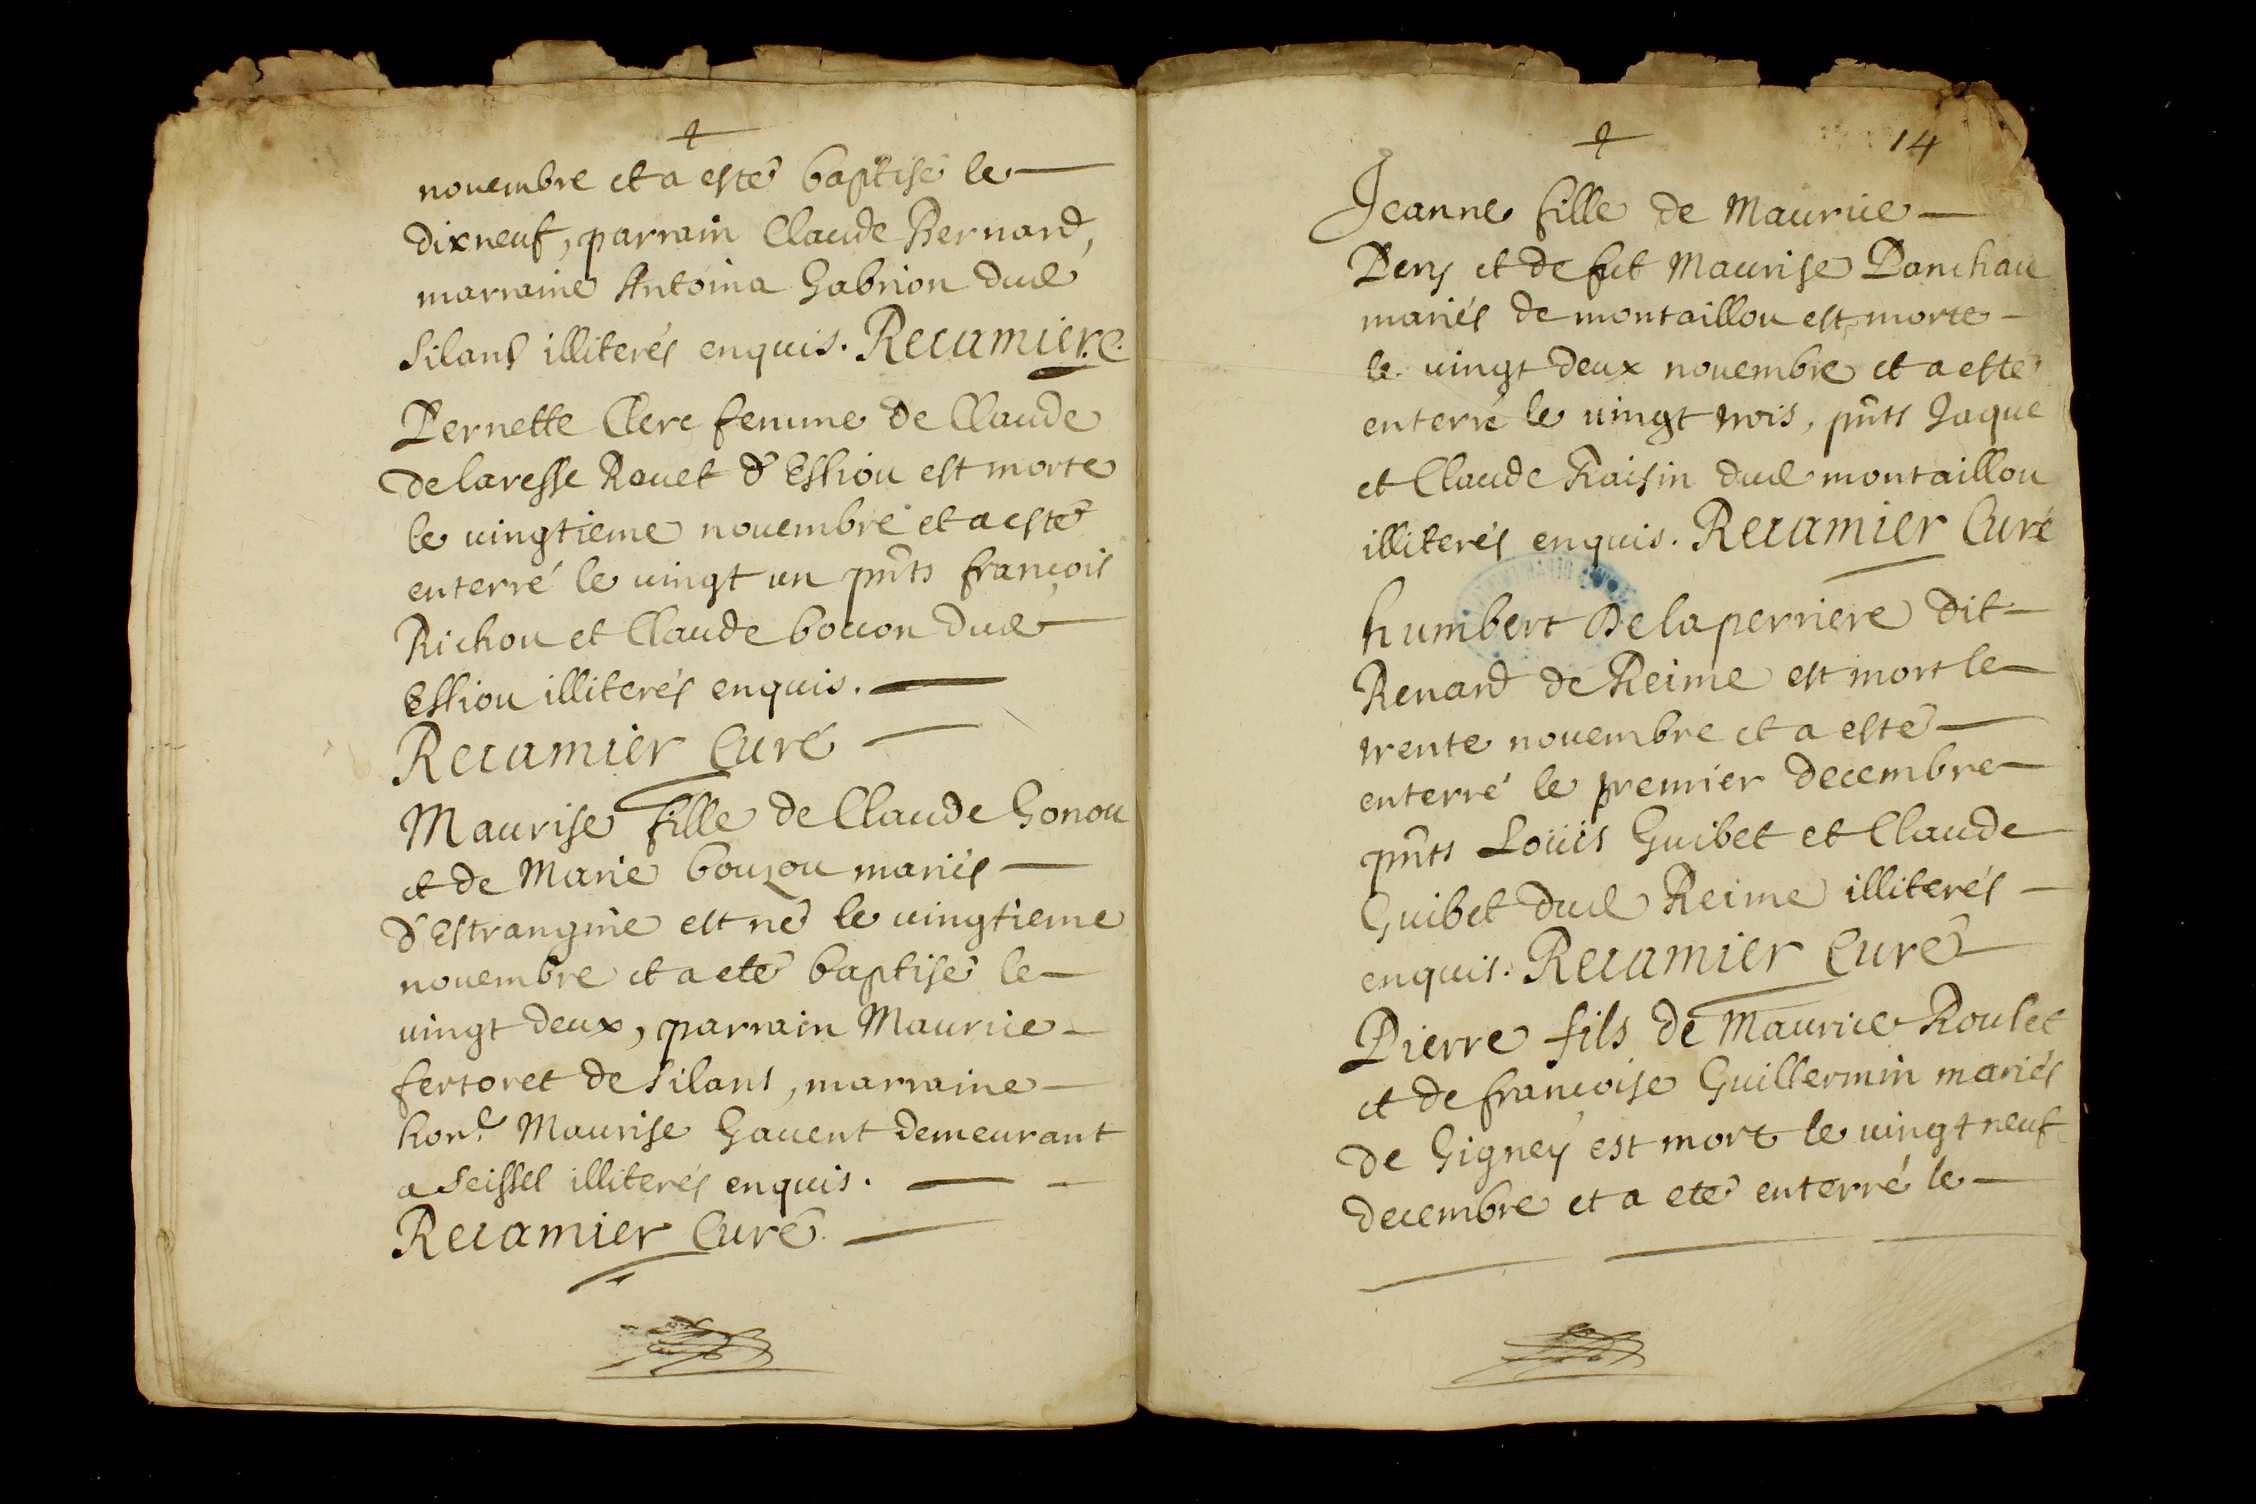 novembre et a esté baptisé le
dixneuf, parrain Claude Bernard,
marraine Antoina Gabrion dud
Silans illiterés enquis. Recamier. C.
Pernette Clerc femme de Claude
Delaresse Rouet d'Essiou est morte
le vingtieme novembre et a esté
enterré le vingt un pnts françois
Richou et Claude boccon dud
Essiou illiterés enquis.
Recamier Curé
Maurise fille de Claude Gonou
et de Marie bouzou mariés
d'Estrangine est né le vingtieme
novembre et a eté baptisé le
vingt deux, parrain Maurice
fertoret de Silans, marraine
hon.e Maurise Gavent demeurant
a Seissel illiterés enquis.
Recamier Curé
14
Jeanne fille de Maurice
Pery et de fut Maurise Panchau
mariés de montaillou est morte
le vingt deux novembre et a esté
enterré le vingt trois, pnts Jaque
et Claude Raisin dud montaillou
illiterés enquis. Recamier Curé
humbert Delaperriere dit
Renard de Reime est mort le
trente novembre et a esté
enterré le premier decembre
pnts Loüis Guibet et Claude
Guibet dud Reime illiterés
enquis. Recamier Curé
Pierre fils de Maurice Roulet
et de françoise Guillermin mariés
de Gigney est mort le vingt neuf
decembre et a eté enterré le